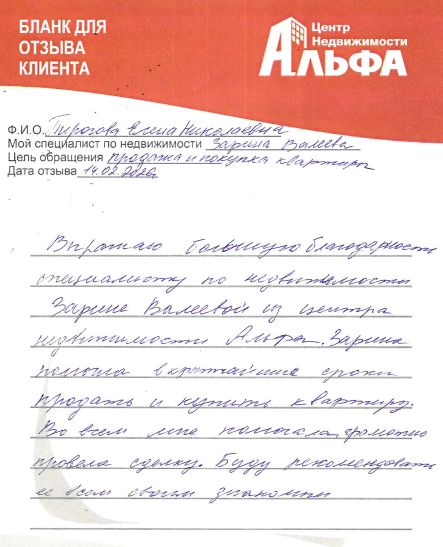 БЛАНК ДЛЯ
ОТЗЫВА
КЛИЕНТА
Центр
Недвижимости
АЛЬФА
Ф.И.О. Пирогова Елена Николаевна
Мой специалист по недвижимости Зарина Валеева
Цель обращения продажа и покупка квартиры
Дата отзыва 14.02.2026
Выражаю большую благодарность
специалисту по недвижимости
Зарине Валеевой из центра
недвижимости Альфа. Зарина
помогла в кратчайшие сроки
продать и купить квартиру.
Во всем мне помогала, грамотно
провела сделку. Буду рекомендовать
ее всем своим знакомым